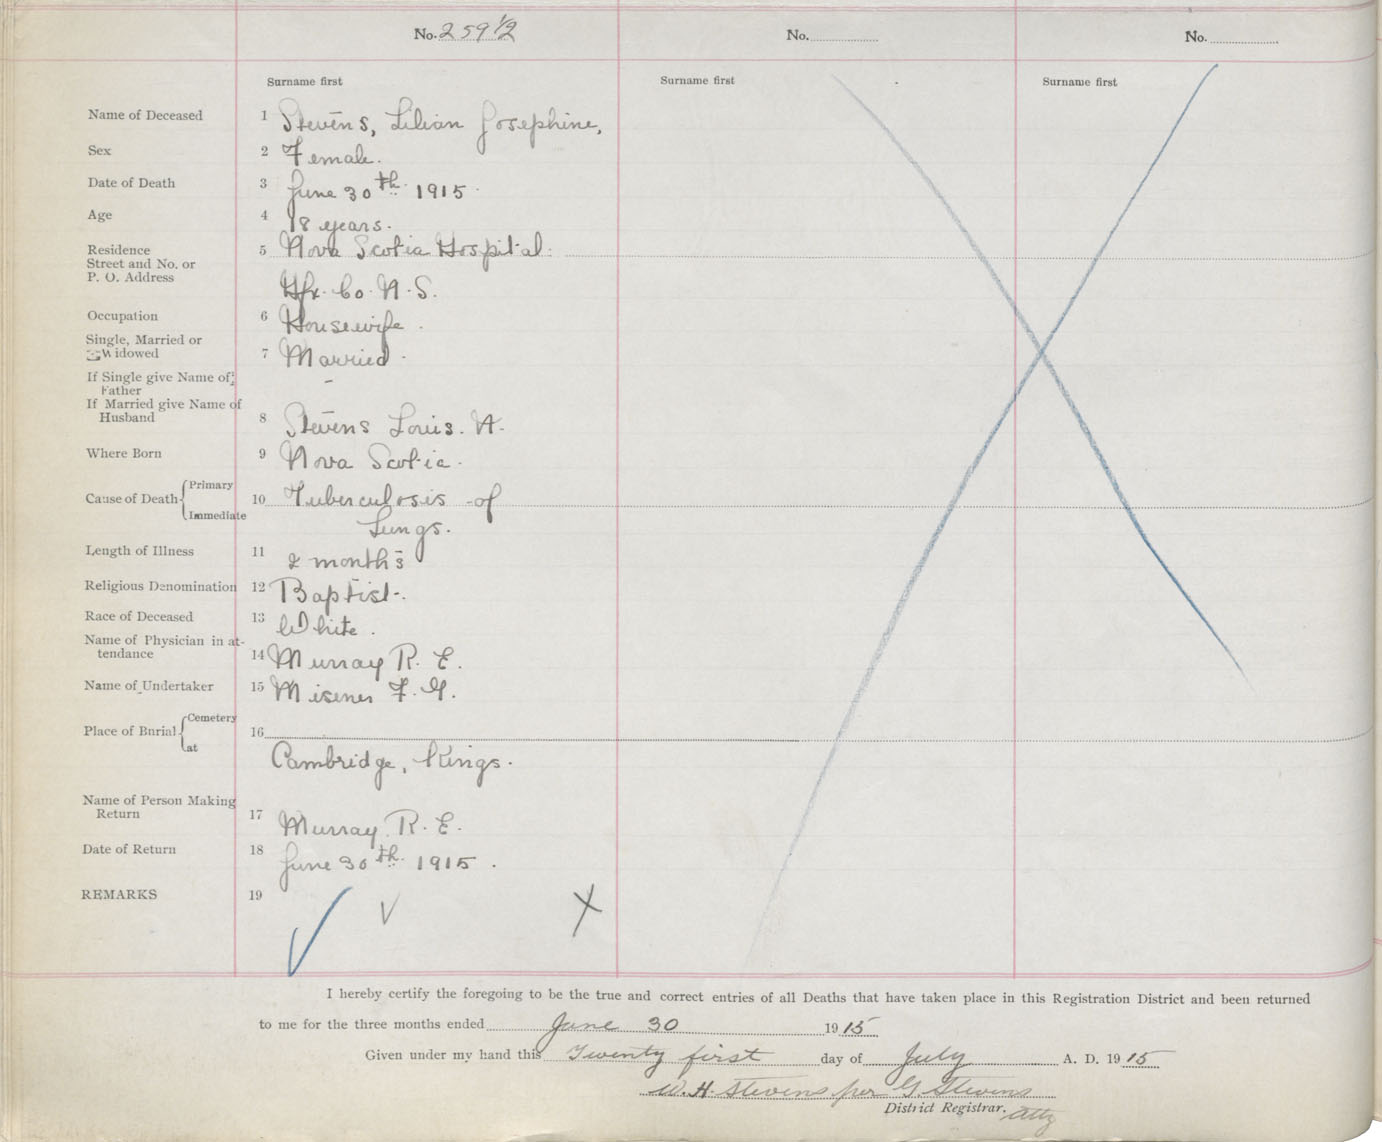 No. 259 1/2
No.
No.
Surname first
Surname first
Surname first
Name of Deceased 1 Stevens, Lilian Josephine,
Sex 2 Female.
Date of Death 3 June 30th 1915
Age 4 18 years.
Residence 5 Nova Scotia Hospital.
Street and No. or
P. O. Address Hfx. Co. N. S.
Occupation 6 Housewife.
Single, Married or
Widowed 7 Married.
If Single give Name of
Father -
If Married give Name of
Husband 8 Stevens Louis. A.
Where Born 9 Nova Scotia.
Cause of Death { Primary Immediate 10 Tuberculosis of
Lungs.
Length of Illness 11 2 months
Religious Denomination 12 Baptist.
Race of Deceased 13 White.
Name of Physician in at-
tendance 14 Murray R. E.
Name of Undertaker 15 Misener F. G.
Place of Burial { Cemetery at 16
Cambridge, Kings.
Name of Person Making
Return 17 Murray R. E.
Date of Return 18 June 30th 1915.
REMARKS 19
I hereby certify the foregoing to be the true and correct entries of all Deaths that have taken place in this Registration District and been returned
to me for the three months ended June 30 1915
Given under my hand this Twenty first day of July A. D. 1915
W. H. Stevens per G. Stevens
District Registrar. Atty